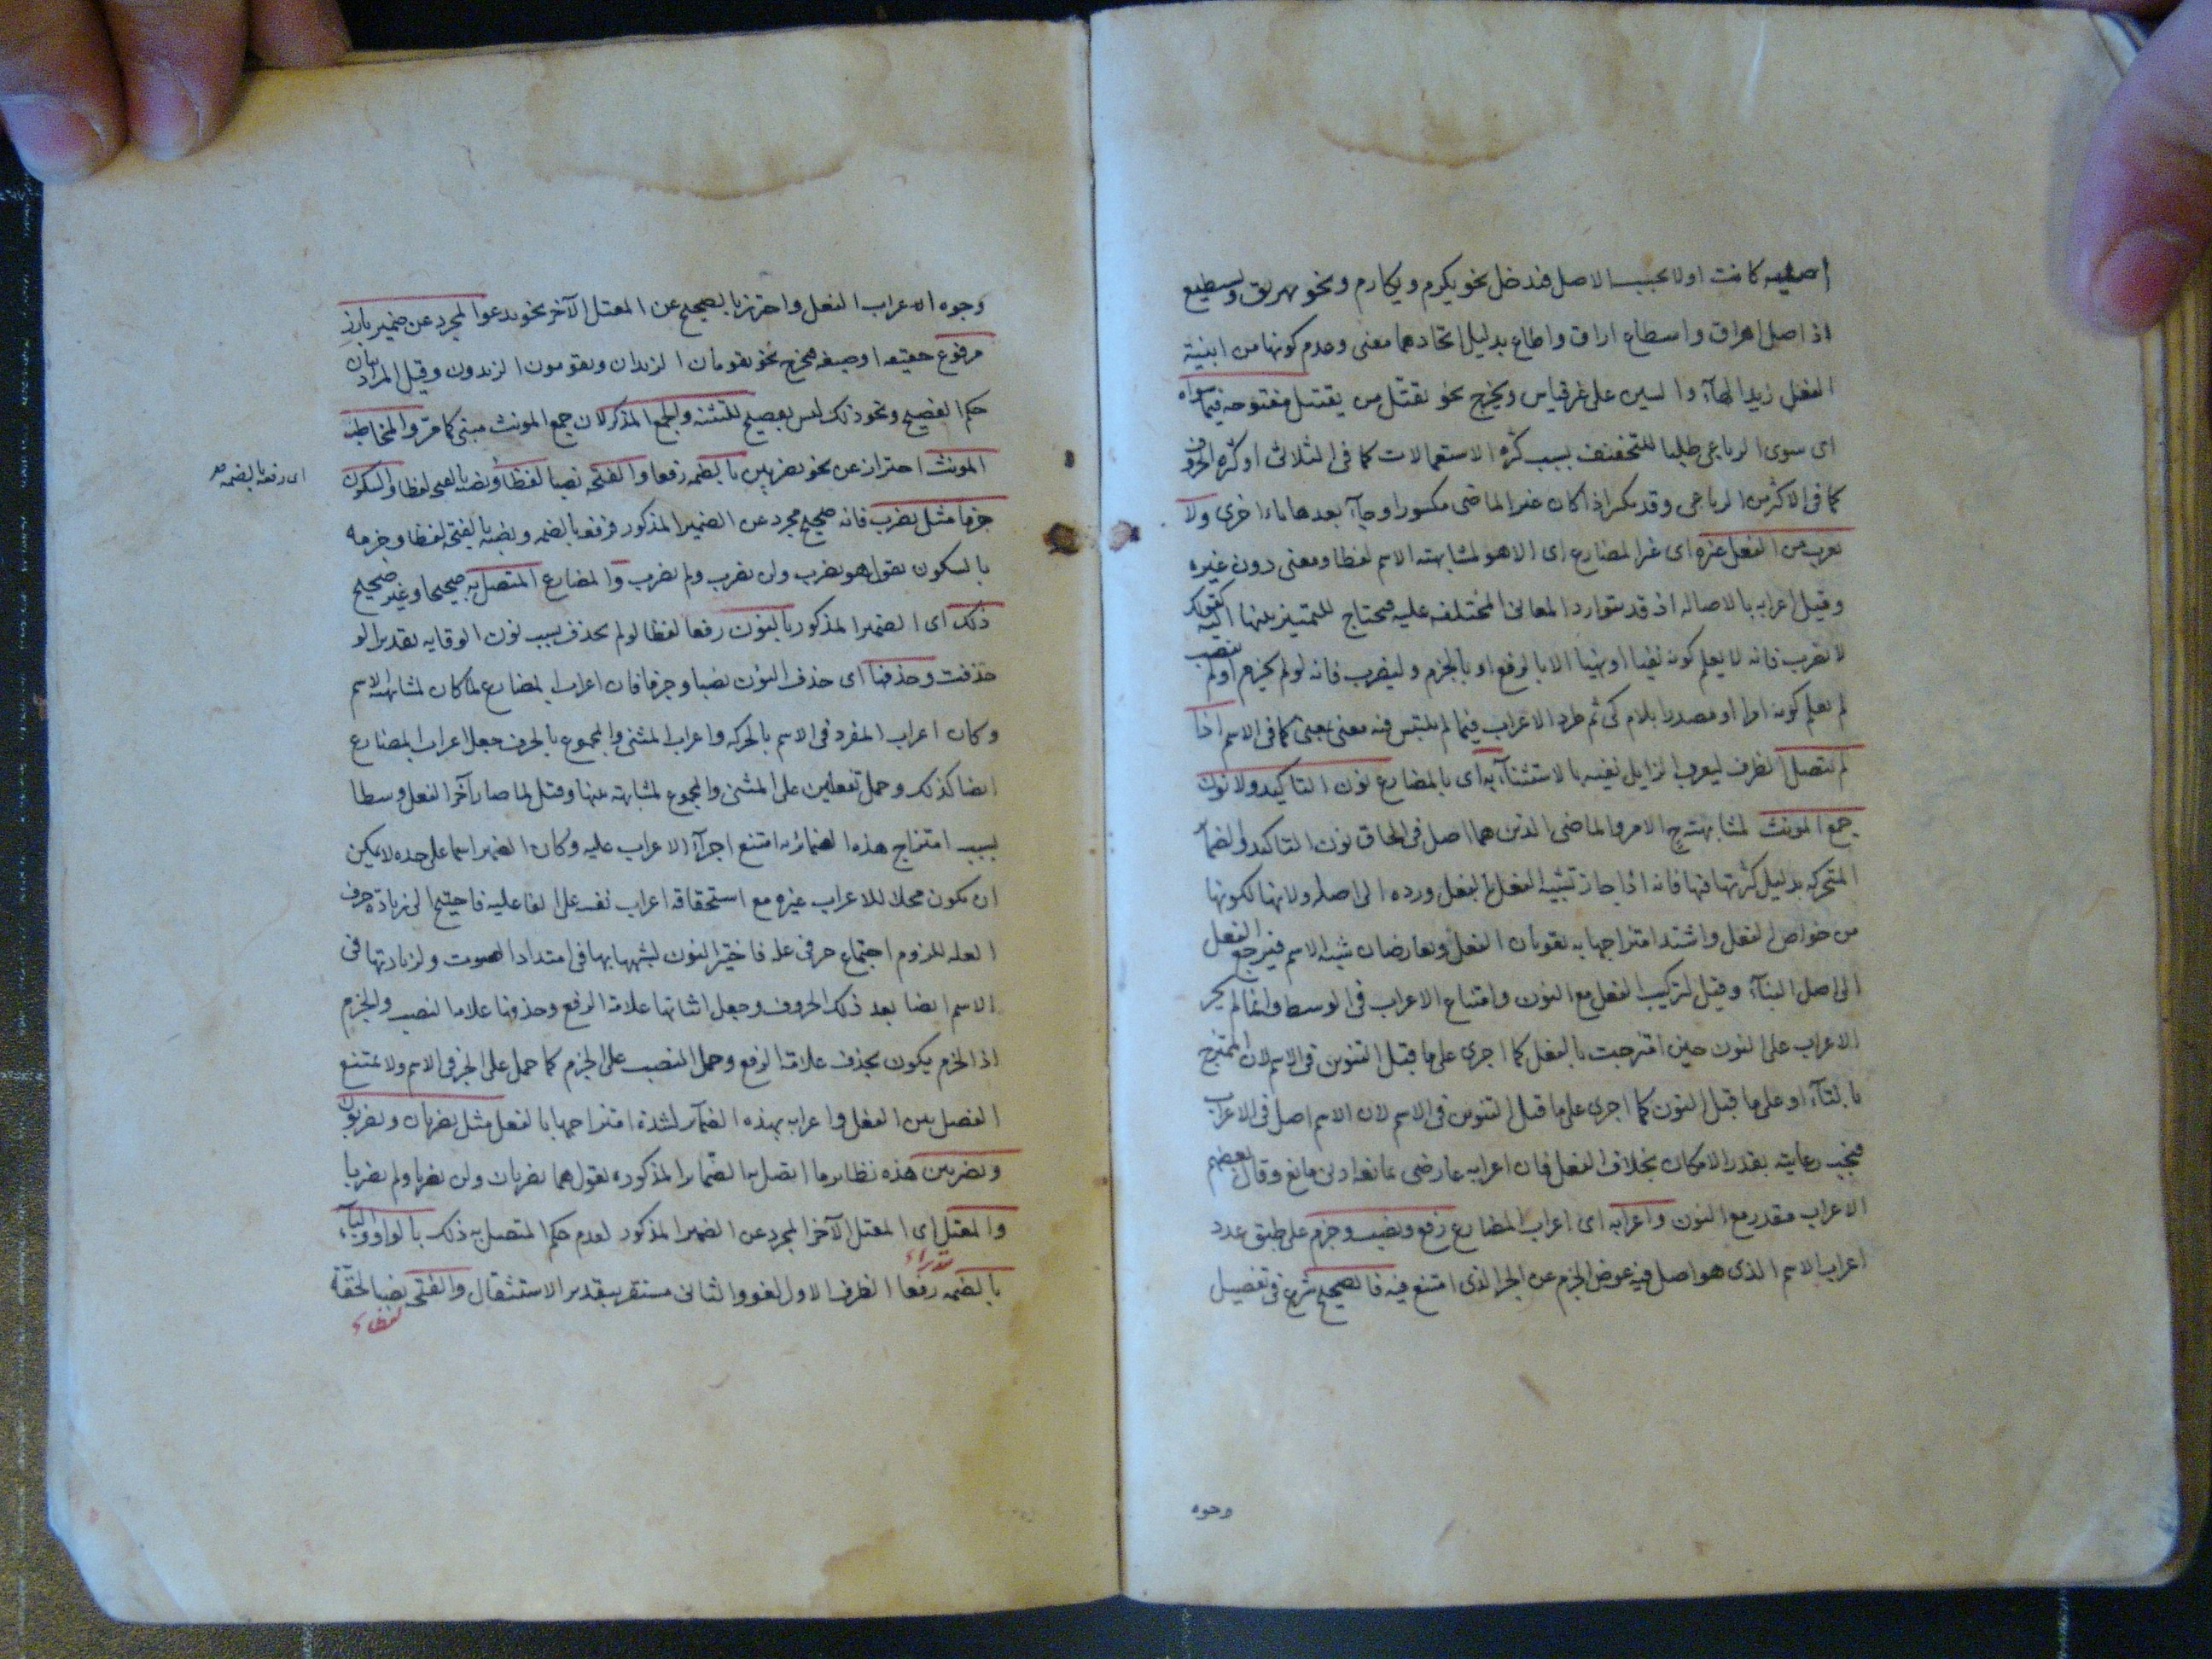 اصلية كانت اولا بحسب الاصل فدخل نحو يكرم ويكارم ونحو يهريق ويسطيع
اذ اصل اهراق واسطاع اراق واطاع بدليل اتحادهما معنى وعدم كونها من ابنية
الفعل زيد الهآء والسين على غير قياس ويخرج نحو يقتل من يقتتل مفتوحة فيما سواه
اى سوى الرباعى طلبا للتخفيف بسبب كثرة الاستعمالات كما فى الثلاثى او كثرة الحروف
كما فى الاكثر من الرباعى وقد يكسر اذا كان عين الماضى مكسورا وجآء بعدها ياء اخرى ولا
يعرب من الفعل غيره اى غير المضارع اى الا هو لمشابهته الاسم لفظا ومعنى دون غيره
وقيل اعرابه بالاصالة اذ قد يتوارد المعانى المختلفة عليه فيحتاج للتمييز بينها اليه كقولك
لا تضرب فانه لا يعلم كونه نفيا او نهيا الا بالرفع او بالجزم وليضرب فانه لو لم يجزم او لم ينصب
لم يعلم كونه امرا او مصدرا بلام كى ثم طرد الاعراب فيما لم يلتبس فيه معنى بمعنى كما فى الاسم اذا
لم يتصل الظرف ليعرب الزايل نفيه بالاستثنآء به اى بالمضارع نون التاكيد ولا نون
جمع المونث لمشابهته ح الامر والماضى الذين هما اصل فى الحاق نون التاكيد والضمآ
المتحركة بدليل كثرتها فيها فانه اذا جاز تشبيه الفعل بالفعل ورده الى اصله ولانها لكونها
من خواص الفعل واشتد امتزاجها به تقويان الفعل وتعارضان شبه الاسم فيرجع الفعل
الى اصل البنآء وقيل لتركيب الفعل مع النون وامتناع الاعراب فى الوسط وانما لم يجر
الاعراب على النون حين امتزجت بالفعل كما اجرى على ما قبل التنوين فى الاسم لان الممتزج
بالتآء او على ما قبل النون كما اجرى على ما قبل التنوين فى الاسم لان الاسم اصل فى الاعراب
فيجب رعايته بقدر الامكان بخلاف الفعل فان اعرابه عارضى يمانعه ادنى مانع وقال بعضهم
الاعراب مقدر مع النون واعرابه اى اعراب المضارع رفع ونصب وجزم على طبق عدد
اعراب الاسم الذى هو اصل فيه عوض الجزم عن الجر الذى امتنع فيه فالصحيح شرع فى تفصيل
وجوه
وجوه الاعراب الفعل واحترز بالصحيح عن المعتل الآخر نحو يدعو المجرد عن ضمير بارز
مرفوع حقيقة او صيغة فيخرج نحو يقومان الزيدان ويقومون الزيدون وقيل المراد بيان
حكم الفصيح ونحو ذلك ليس بفصيح للتثنية والجمع المذكر لان جمع المونث مبنى كما مر والمخاطب
المونث احتراز عن نحو تضربين بالضمة رفعا والفتحة نصبا لفظا ونصبه بالفتح لفظا والسكون
اى رفعه بالضمة صح
جزما مثل يضرب فانه صحيح مجرد عن الضمير المذكور فرفعه بالضمة ونصبه بالفتحة لفظا وجزمه
بالسكون تقول هو يضرب ولن يضرب ولم يضرب والمضارع المتصل به صحيحا وغير صحيح
ذلك اى الضمير المذكور بالنون رفعا لفظا لو لم يحذف بسبب نون الوقاية تقديرا لو
حذفت وحذفها اى حذف النون نصبا وجزما فان اعراب المضارع لما كان لمشابهة الاسم
وكان اعراب المفرد فى الاسم بالحركة واعراب المثنى والمجموع بالحرف جعل اعراب المضارع
ايضا كذلك وحمل تفعلين على المثنى والمجموع لمشابهته بهما وقيل لما صار آخر الفعل وسطا
بسبب امتزاج هذه الضمائر به امتنع اجرآء الاعراب عليه وكان الضمير اسما على حده لا يمكن
ان يكون محلا للاعراب غيره مع استحقاقه اعراب نفسه على الفاعلية فاحتيج الى زيادة حرف
العلة للزوم اجتماع حرفى علة فاختير النون لشبهها بها فى امتداد الصوت ولزيادتها فى
الاسم ايضا بعد ذلك الحروف وجعل اثباتها علامة الرفع وحذفها علامة النصب والجزم
اذ الجزم يكون بحذف علامة الرفع وحمل النصب على الجزم كما حمل على الجر فى الاسم ولا يمتنع
الفصل بين الفعل واعرابه بهذه الضمآئر لشدة امتزاجها بالفعل مثل يضربان ويضربون
وتضربين هذه نظاير ما اتصل بها الضماير المذكورة تقول هما يضربان ولن يضربا ولم يضربا
والمعتل اى المعتل الآخر المجرد عن الضمير المذكور لعدم حكم المتصل به ذلك بالواو واليآء
بالضمة تقديرا رفعا الظرف الاول لغو والثانى مستقر بتقدير الاستثقال والفتح نصبا لخفة
لفظا